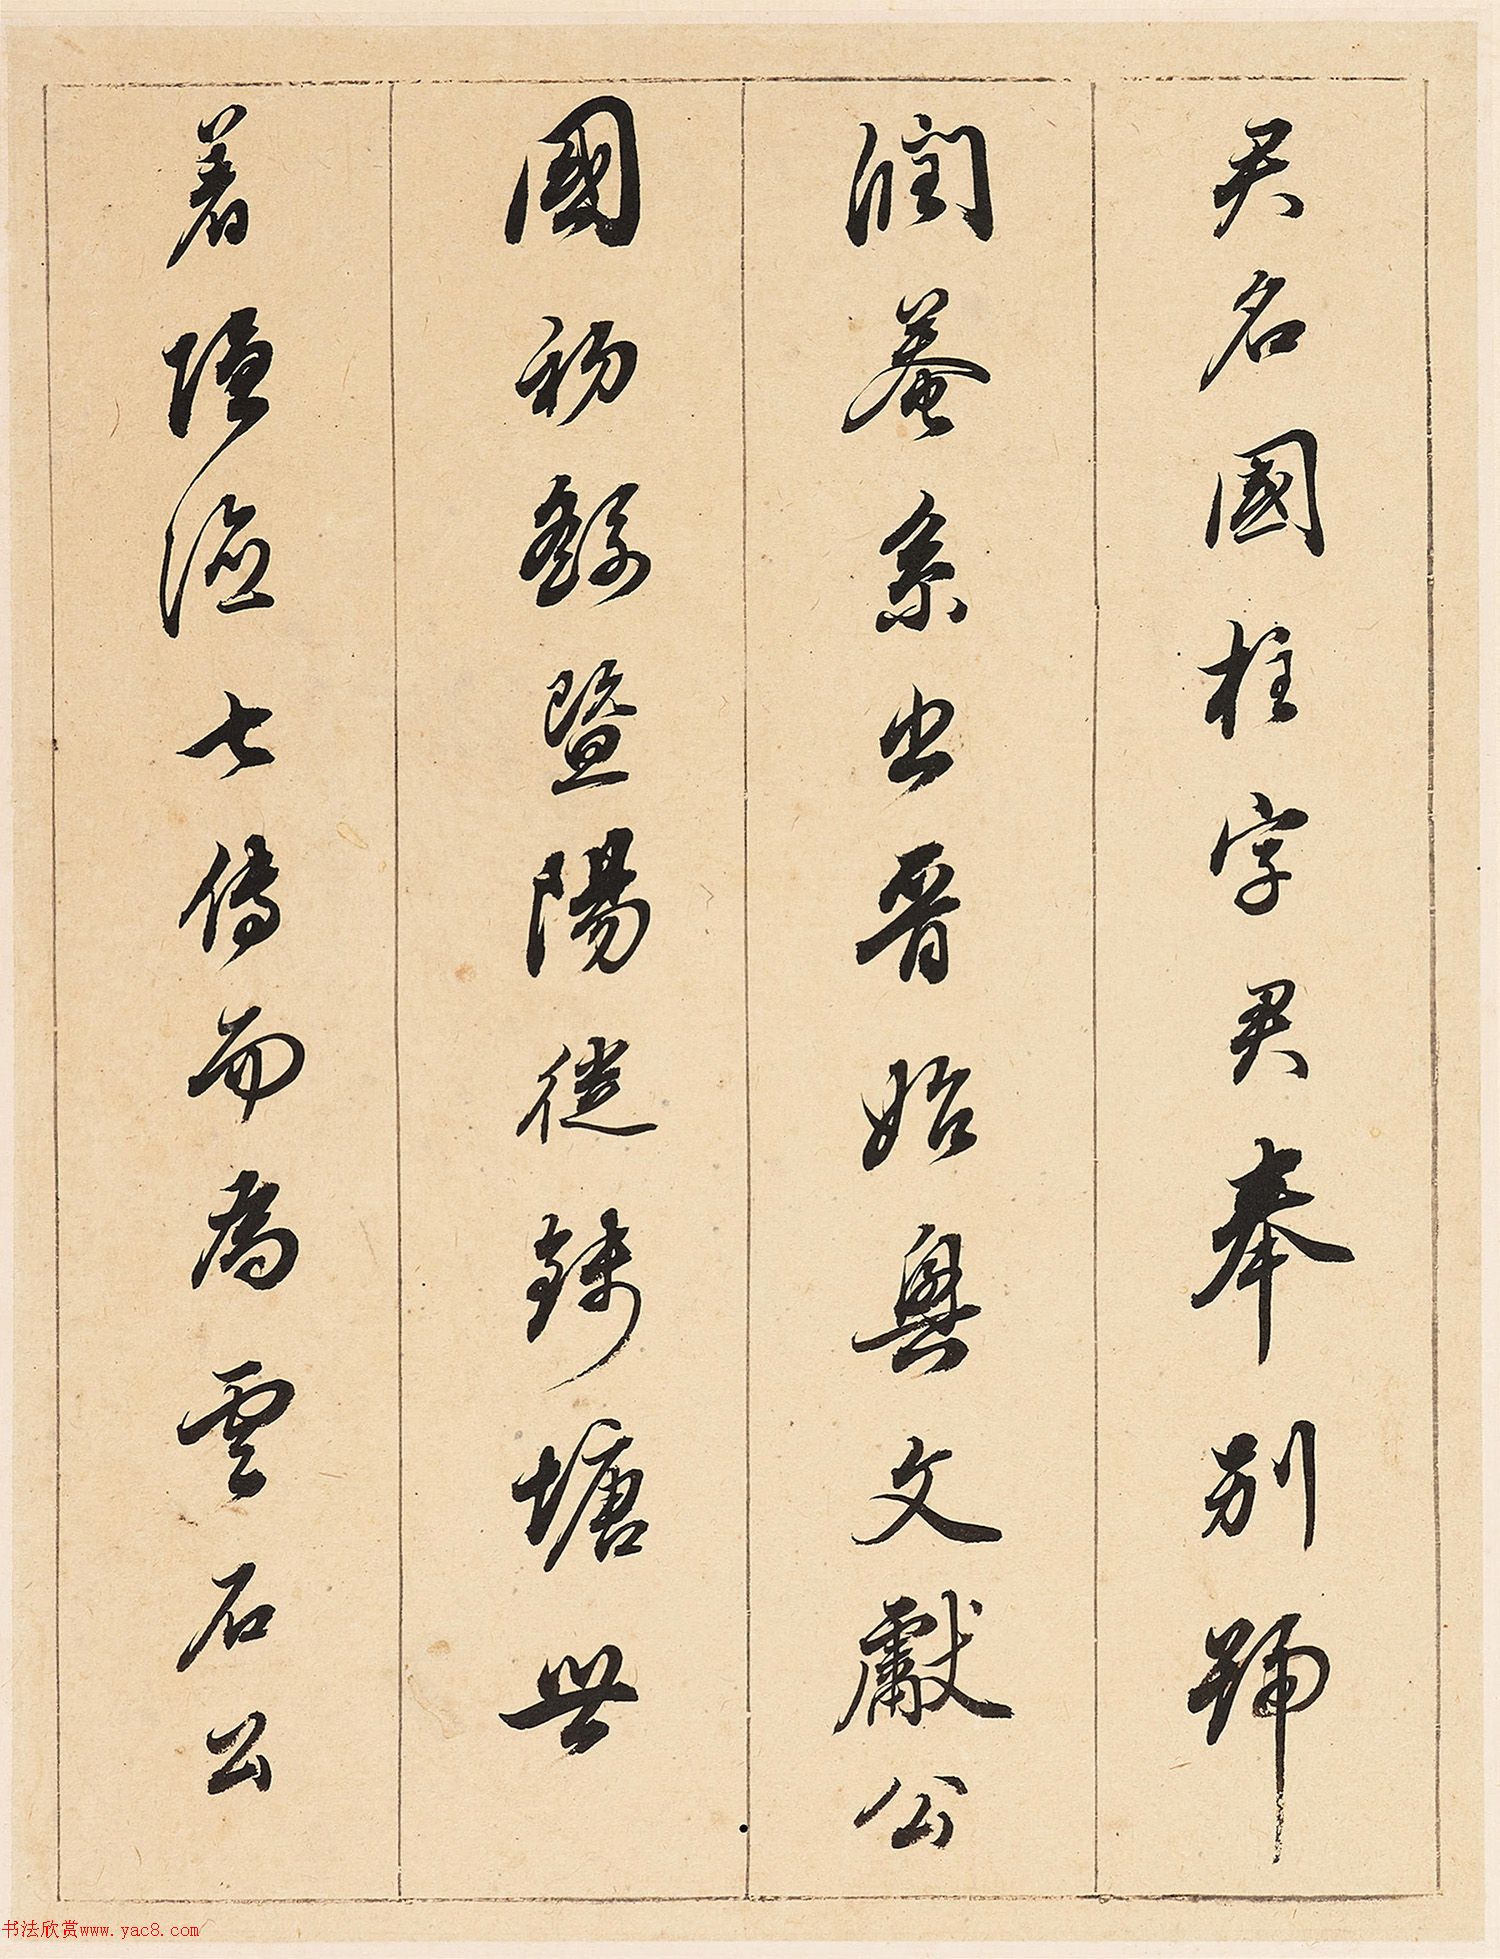 君名國柱字君奉別號
潤菴系出晉始興文獻公
國初繇暨陽徙錢塘世
著隱德七傳而為雲石公
书法欣赏www.yac8.com